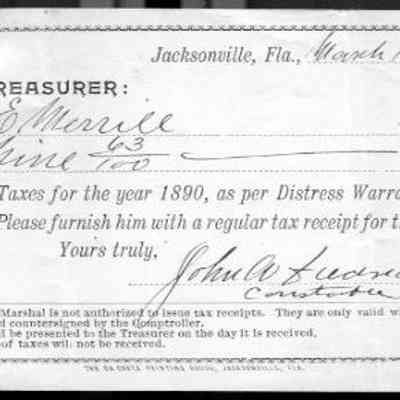 Jacksonville, Fla., March
REASURER:
E Merrill
Nine 63/100
Taxes for the year 1890, as per Distress Warra
Please furnish him with a regular tax receipt for th
Yours truly,
John W
Constable
Marshal is not authorized to issue tax receipts. They are only valid w
d countersigned by the Comptroller.
d be presented to the Treasurer on the day it is received.
of taxes will not be received.
THE DA COSTA PRINTING HOUSE, JACKSONVILLE, FLA.